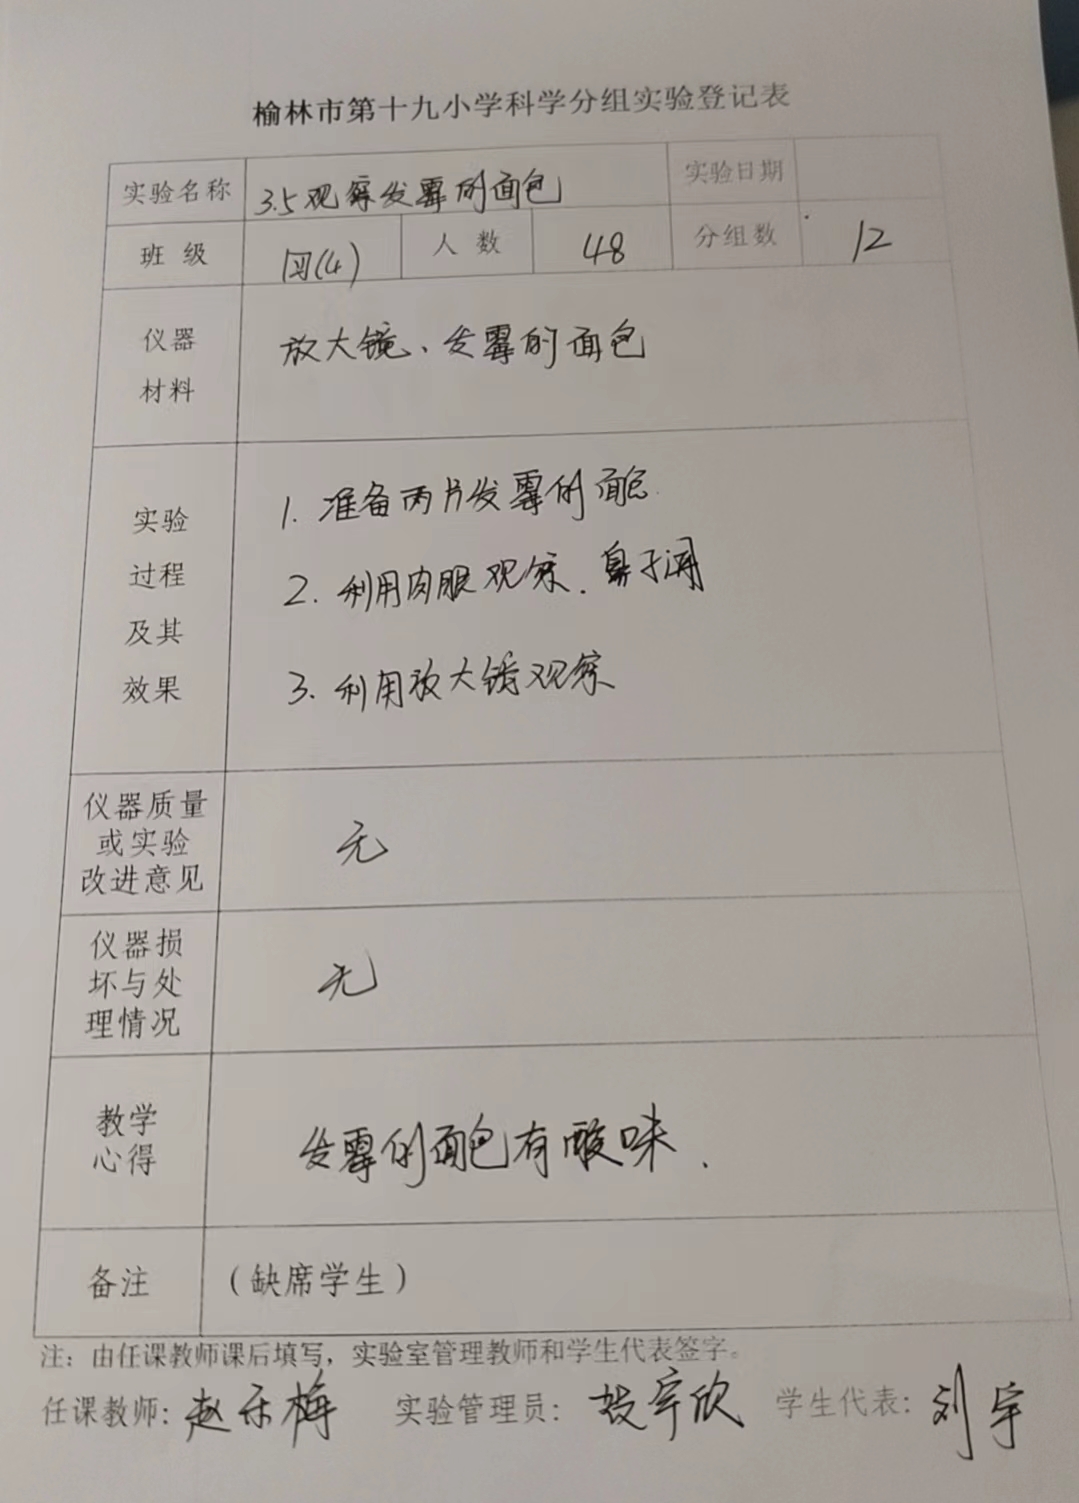 榆林市第十九小学科学分组实验登记表
实验名称 3.5观察发霉的面包 实验日期
班级 四(4) 人数 48 分组数 12
仪器 材料 放大镜、发霉的面包
实验 过程 及其 效果
1. 准备两片发霉的面包.
2. 利用肉眼观察. 鼻子闻
3. 利用放大镜观察
仪器质量
或实验
改进意见
无
仪器损
坏与处
理情况
无
教学
心得
发霉的面包有酸味.
备注 (缺席学生)
注: 由任课教师课后填写, 实验室管理教师和学生代表签字。
任课教师: 赵 梅 实验管理员: 宇欣 学生代表: 刘宇